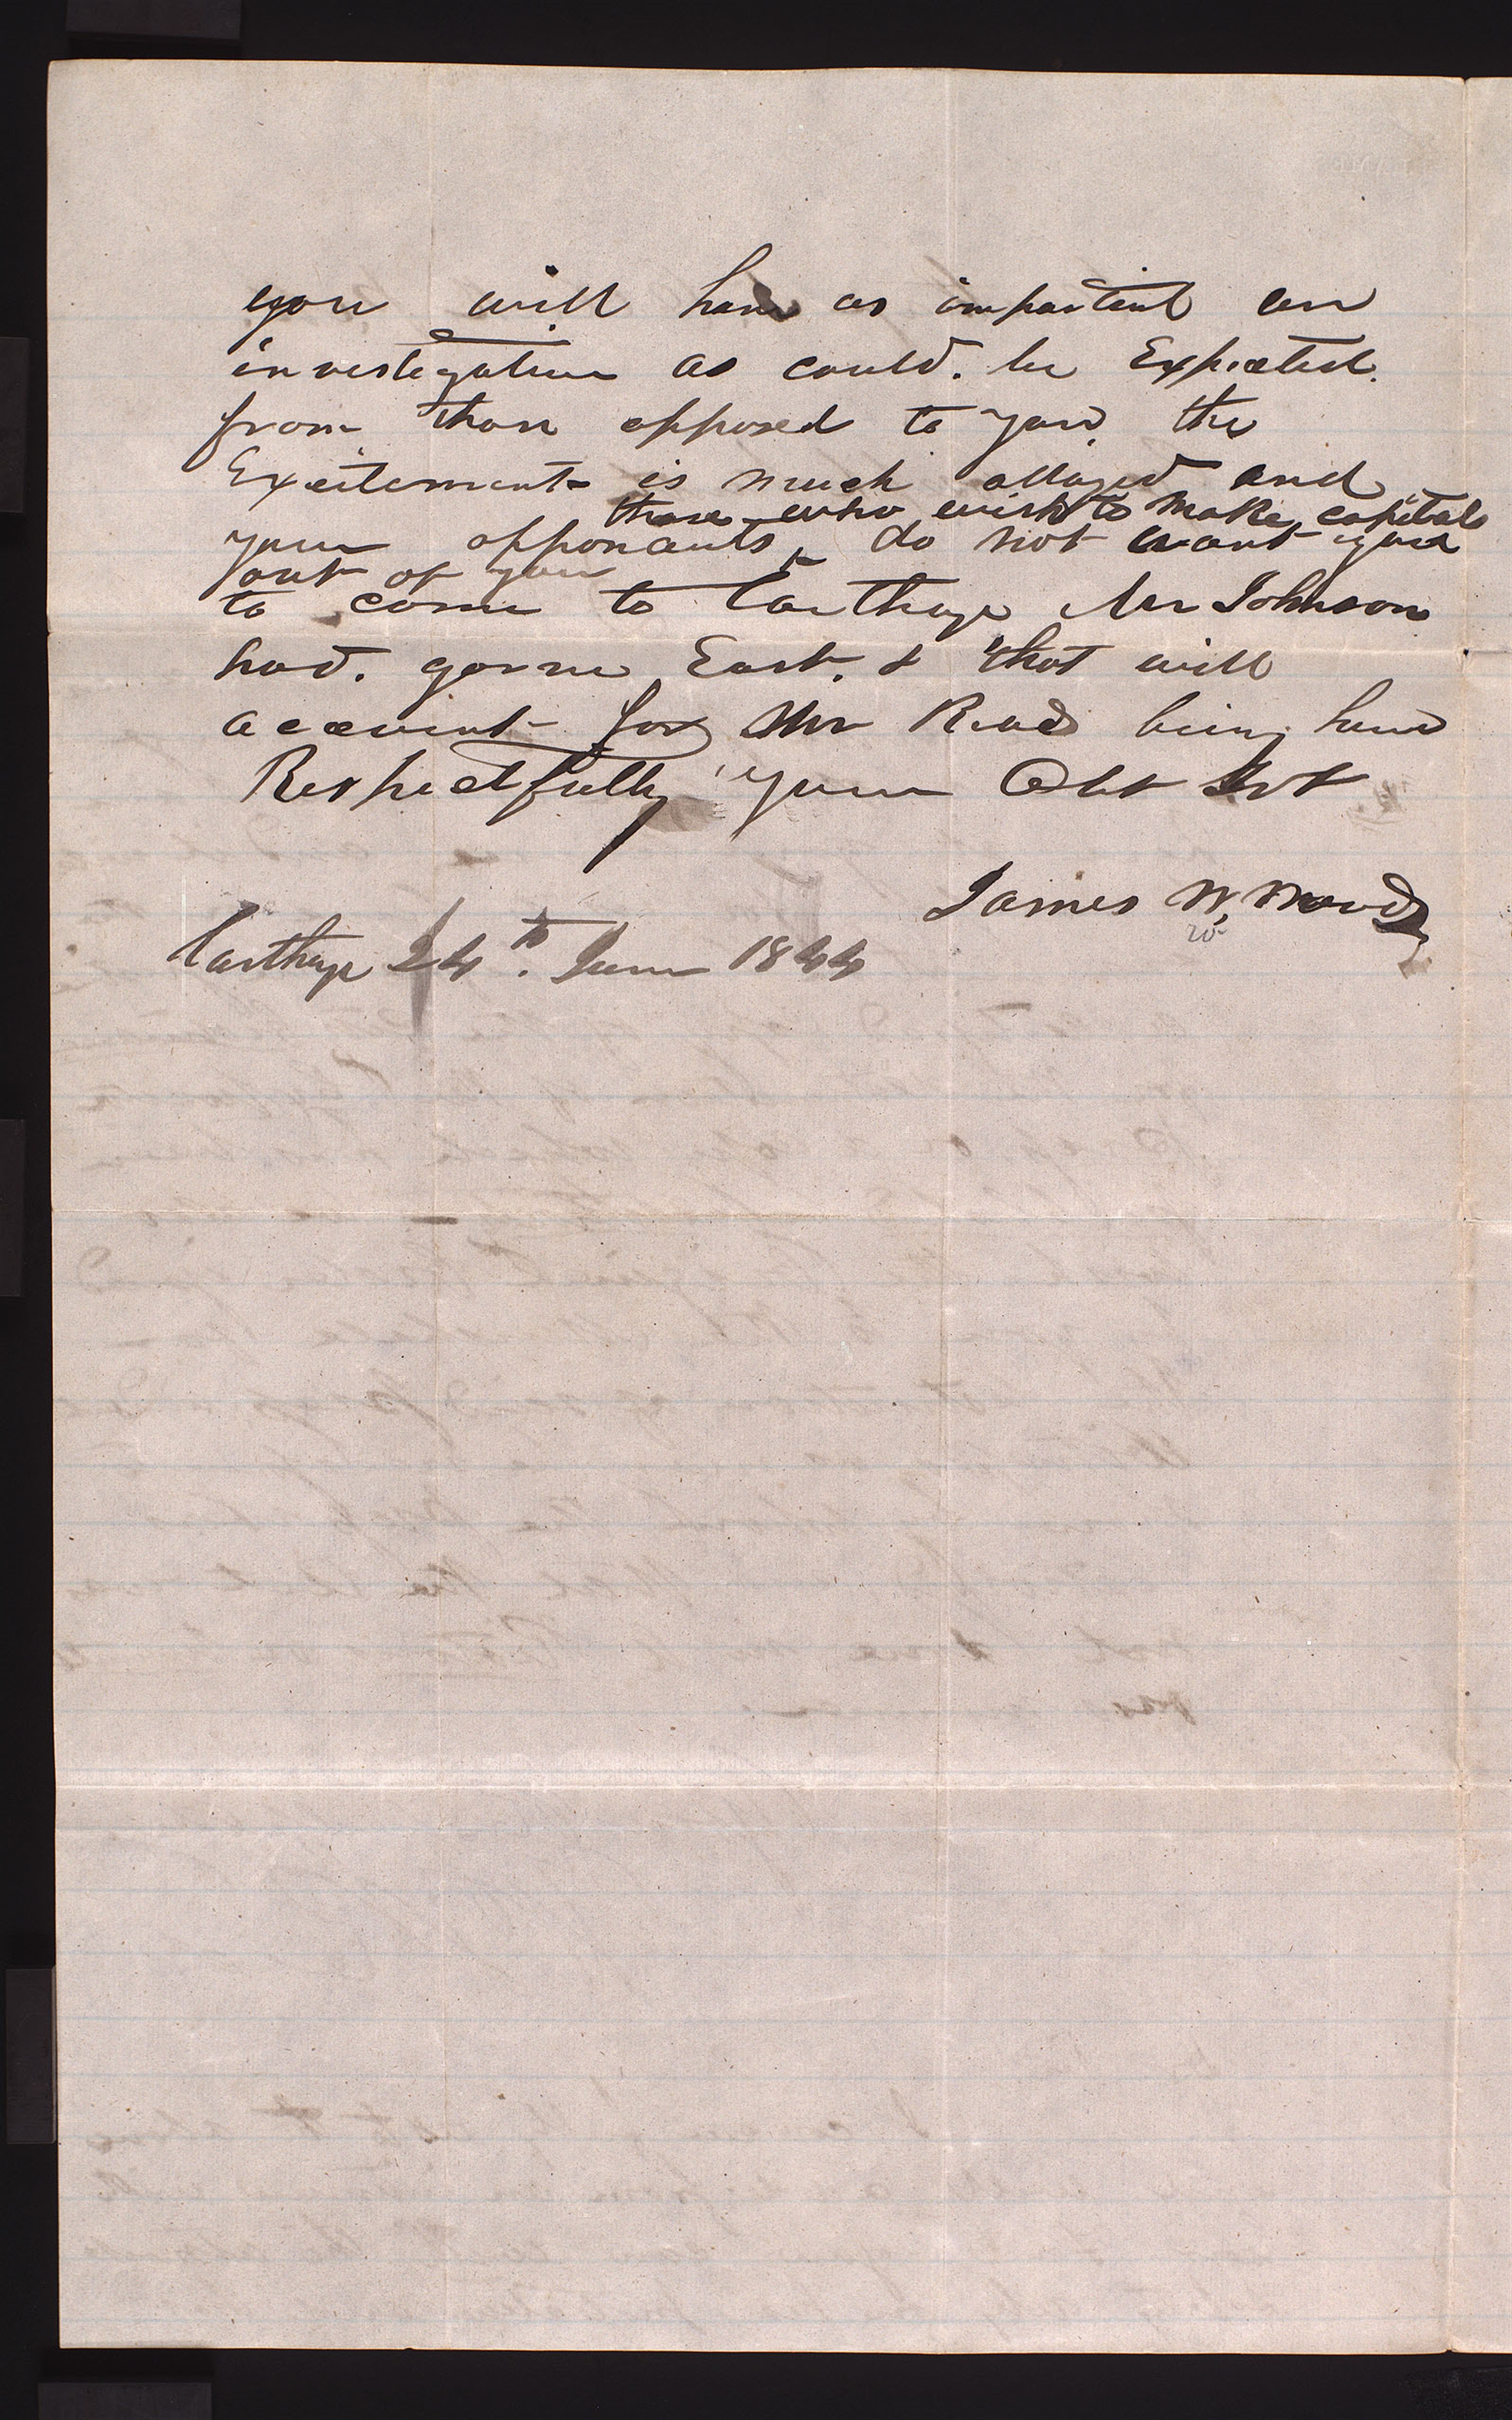 you will have as impartial an
investigation as could. be Expected.
from those opposed to you, the
Excitement is much allayed and
those who wish to make capital
your opponants do not want you
out of you
to come to Carthage Mr Johnson
had. gonne East. & that will
account for Mr Read being here
Respectfully your Obt Svt
James W, Woods
w
Carthage 24th. June 1844